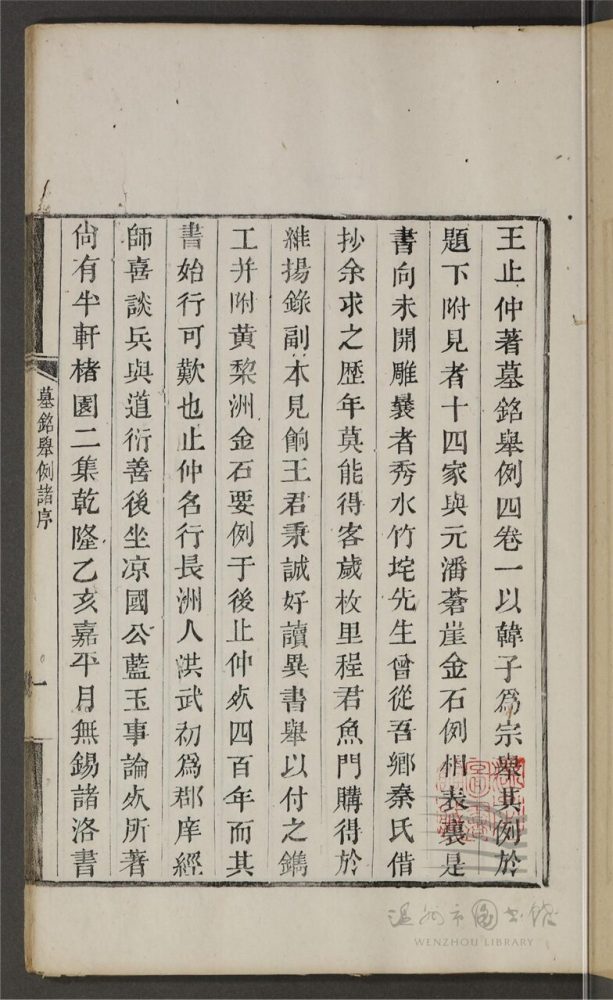 王止仲著墓銘舉例四卷一以韓子爲宗舉其例於
題下附見者十四家與元潘蒼崖金石例相表裏是
書向未開雕曩者秀水竹垞先生曾從吾鄉秦氏借
抄余求之歷年莫能得客歲枚里程君魚門購得於
維揚錄副本見餉王君秉誠好讀異書舉以付之鐫
工并附黃棃洲金石要例于後止仲歿四百年而其
書始行可歎也止仲名行長洲人洪武初爲郡庠經
師喜談兵與道衍善後坐凉國公藍玉事論歿所著
尙有半軒楮園二集乾隆乙亥嘉平月無錫諸洛書
墓銘舉例諸序
一
温州市图书馆
WENZHOU LIBRARY